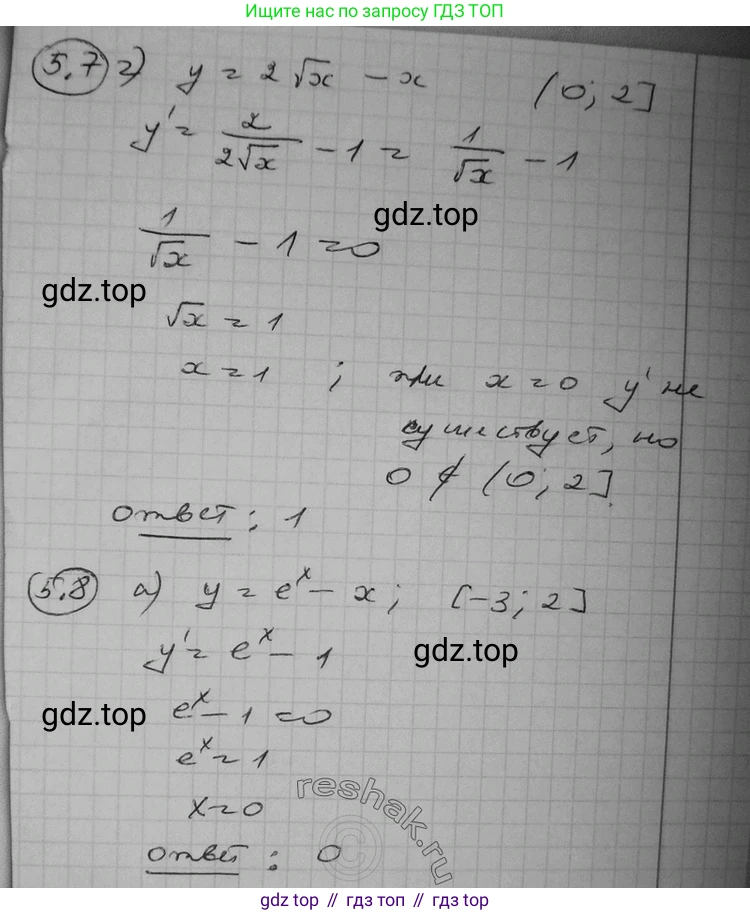 Ищите нас по запросу ГДЗ ТОП
5.7 г) y = 2√x − x (0; 2]
y' = 2/(2√x) − 1 = 1/√x − 1
gdz.top
1/√x − 1 = 0
gdz.top
√x = 1
x = 1 ; при x = 0 y' не
существует, но
0 ∉ (0; 2]
ответ: 1
5.8 а) y = e^x − x; [−3; 2]
y' = e^x − 1
gdz.top
e^x − 1 = 0
gdz.top
e^x = 1
x = 0
reshak.ru
©
ответ: 0
gdz.top // гдз топ // gdz.top // гдз топ